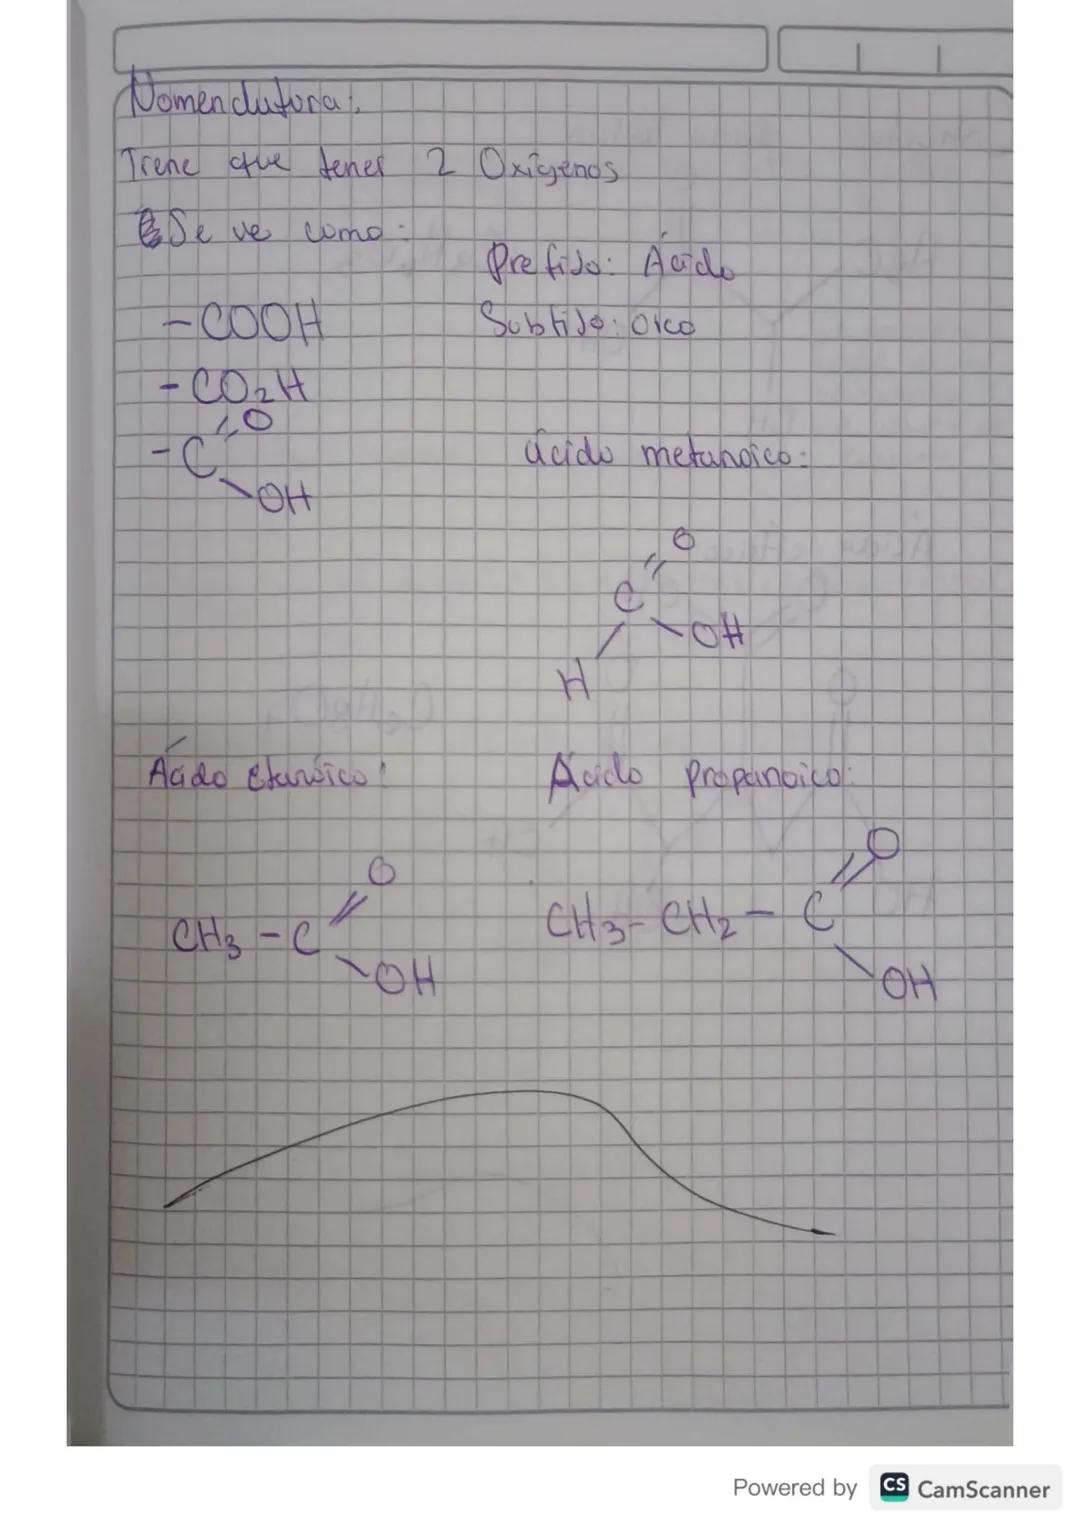 Nomenclutura:
Tiene que tener 2 Oxígenos
Se ve como:
Prefijo: Ácido
- COOH
Subfijo: oico
- CO2H
O
- C
OH
ácido metanoico:
O
C
OH
H
Ácido Etanóico:
Ácido Propanoico:
O
CH3 - C
OH
O
CH3 - CH2 - C
OH
Powered by CS CamScanner